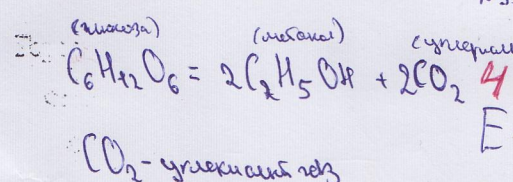 (глюкоза) (метанол)
C₆H₁₂O₆ = 2C₂H₅OH + 2CO₂ 4
E
CO₂ - углекислый газ